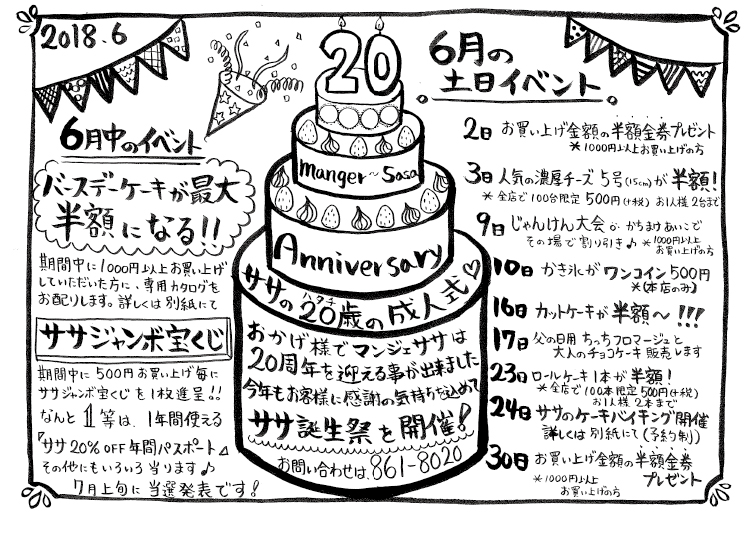 2018.6
6月中のイベント
バースデーケーキが最大
半額になる!!
期間中に1000円以上お買い上げ
していただいた方に、専用カタログを
お配りします。詳しくは別紙にて
ササジャンボ宝くじ
期間中に500円お買い上げ毎に
ササジャンボ宝くじを1枚進呈!!
なんと1等は、1年間使える
『ササ20%OFF年間パスポート』
その他にもいろいろ当ります♪
7月上旬に当選発表です!
20
manger~Sasa
Anniversary
ササの20歳の成人式♡
ハタチ
おかげ様でマンジェササは
20周年を迎える事が出来ました
今年もお客様に感謝の気持ちを込めて
ササ誕生祭を開催!
お問い合わせは、861-8020
6月の
土日イベント
2日 お買い上げ金額の半額金券プレゼント
*1000円以上お買い上げの方
3日 人気の濃厚チーズ5号(15cm)が半額!
*全店で100台限定500円(+税)お1人様2台まで
9日 じゃんけん大会 かちまけあいこで
その場で割り引き♪ *1000円以上
お買い上げの方
10日 かき氷がワンコイン500円
*(本店のみ)
16日 カットケーキが半額~!!!
17日 父の日用ちっちフロマージュと
大人のチョコケーキ販売します
23日 ロールケーキ1本が半額!
*全店で100本限定500円(+税)
お1人様2本まで
24日 ササのケーキバイキング開催
詳しくは別紙にて(予約制)
30日 お買い上げ金額の半額金券
プレゼント
*1000円以上
お買い上げの方